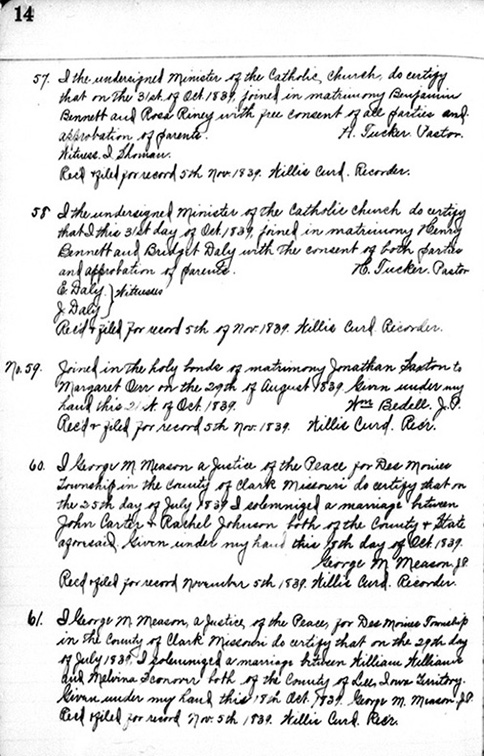 14
57. I the undersigned Minister of the Catholic church, do certify
that on the 31st of Oct. 1839, joined in matrimony Benjamin
Bennett and Rosa Riney with free consent of all parties and
approbation of parents. H. Tucker. Pastor.
Witness. I. Shoman.
Rec'd & filed for record 5th Nov. 1839. Willis Curd. Recorder.
58 I the undersigned Minister of the Catholic church do certify
that I this 31st day of Oct. 1839, joined in matrimony Henry
Bennett and Bridget Daly with the consent of both parties
and approbation of parents. H. Tucker. Pastor
E. Daly } Witnesses
J. Daly
Rec'd & filed for record 5th of Nov. 1839. Willis Curd Recorder.
No. 59. Joined in the holy bonds of matrimony Jonathan Easton to
Margaret Orr on the 29th of August 1839 Given under my
hand this 21st. of Oct. 1839. Wm Bedell. J.P.
Rec'd & filed for record 5th Nov. 1839. Willis Curd. Rec'r.
60. I George M. Meason a Justice of the Peace for Des Moines
Township in the County of Clark Missouri do certify that on
the 25th day of July 1839 I solemnized a marriage between
John Carter & Rachel Johnson both of the County & State
aforesaid. Given under my hand this 18th day of Oct. 1839.
George M. Meason J.P.
Recd & filed for record November 5th 1839. Willis Curd. Recorder.
61. I George M. Meason, a Justice, of the Peace, for Des Moines Township
in the County of Clark Missouri do certify that on the 29th day
of July 1839, I solemnized a marriage between William Williams
and Melvina both of the County of Lee, Iowa Territory.
Given under my hand this 18th Oct. 1839. George M. Meason J.P.
Recd & filed for record Nov. 5th 1839. Willis Curd. Rec'r.